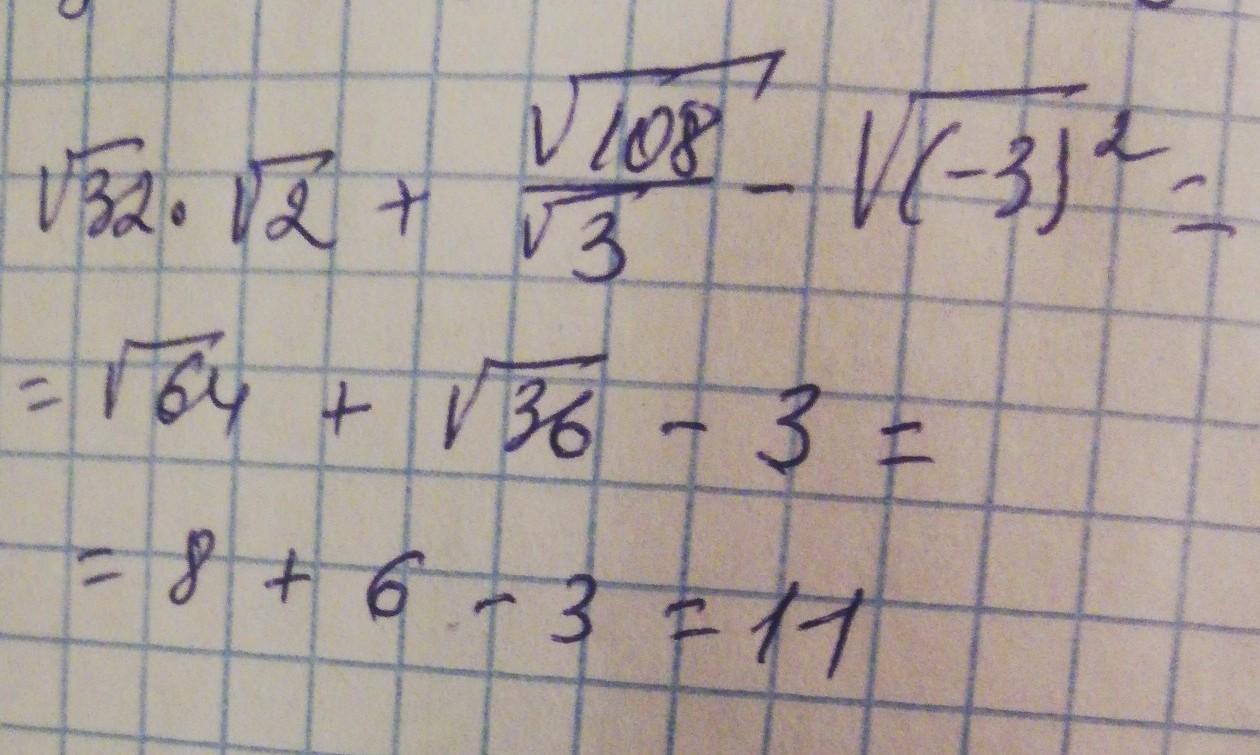 √32 · √2 + √108/√3 - √(-3)² =
= √64 + √36 - 3 =
= 8 + 6 - 3 = 11